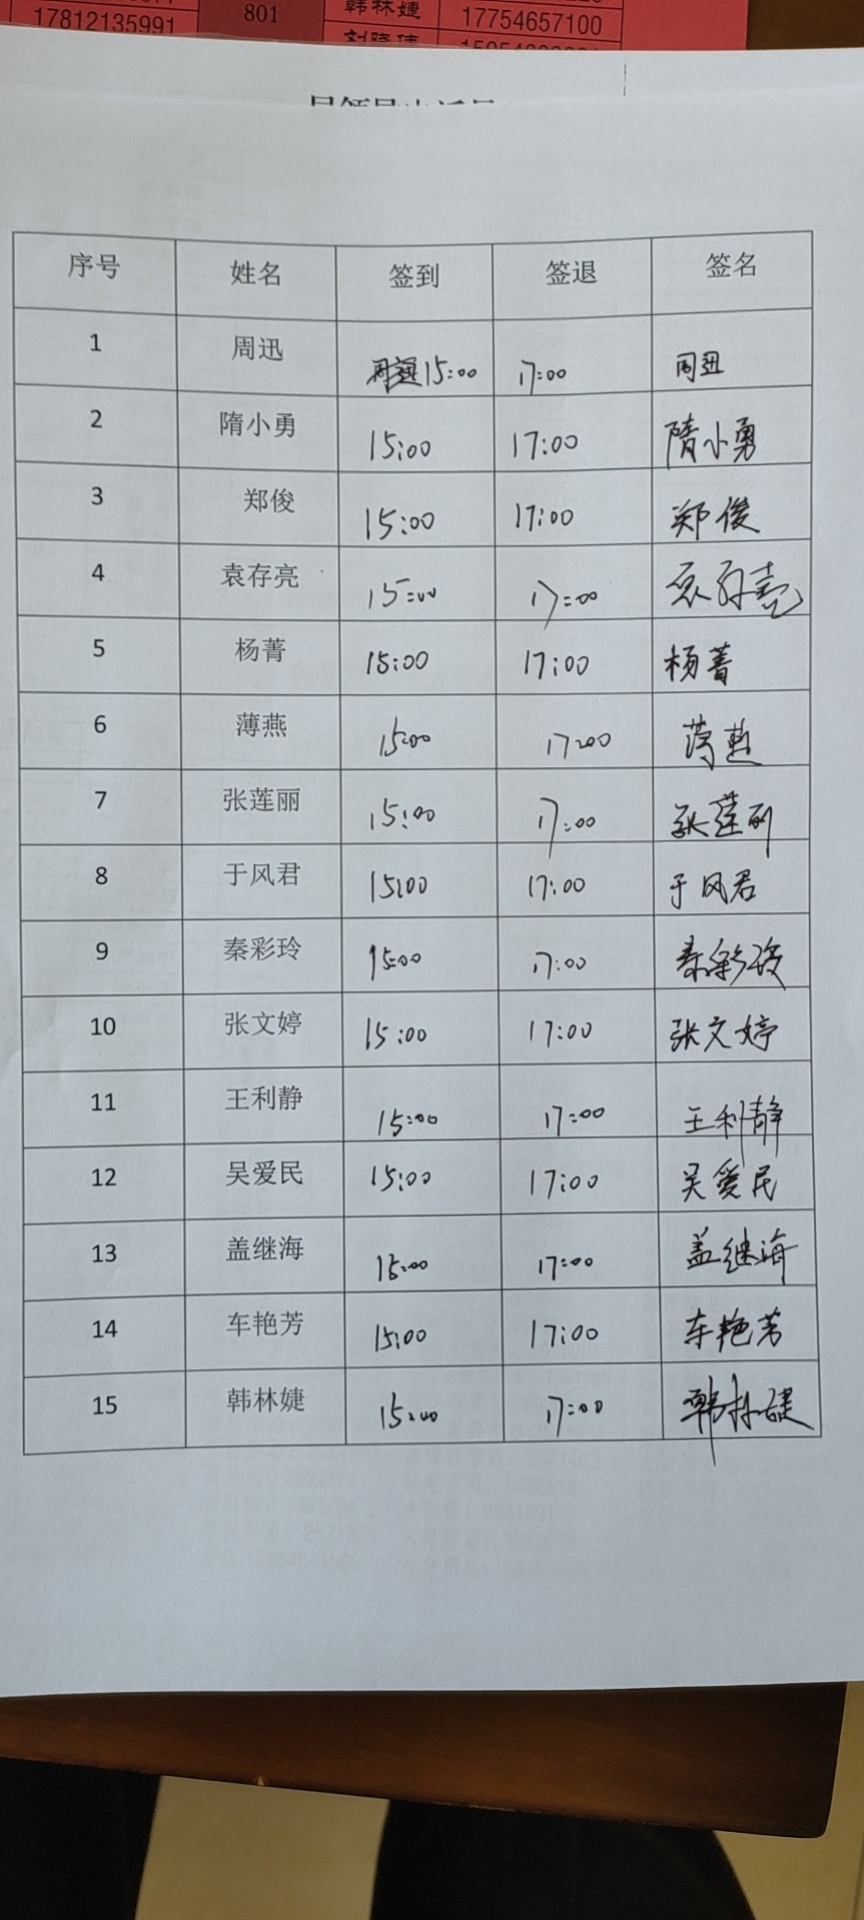 17812135991 801 韩林婕 17754657100
序号 姓名 签到 签退 签名
1 周迅 15:00 17:00 周迅
2 隋小勇 15:00 17:00 隋小勇
3 郑俊 15:00 17:00 郑俊
4 袁存亮 15:00 17:00 袁存亮
5 杨菁 15:00 17:00 杨菁
6 薄燕 15:00 17:00 薄燕
7 张莲丽 15:00 17:00 张莲丽
8 于风君 15:00 17:00 于风君
9 秦彩玲 15:00 17:00 秦彩玲
10 张文婷 15:00 17:00 张文婷
11 王利静 15:00 17:00 王利静
12 吴爱民 15:00 17:00 吴爱民
13 盖继海 15:00 17:00 盖继海
14 车艳芳 15:00 17:00 车艳芳
15 韩林婕 15:00 17:00 韩林婕